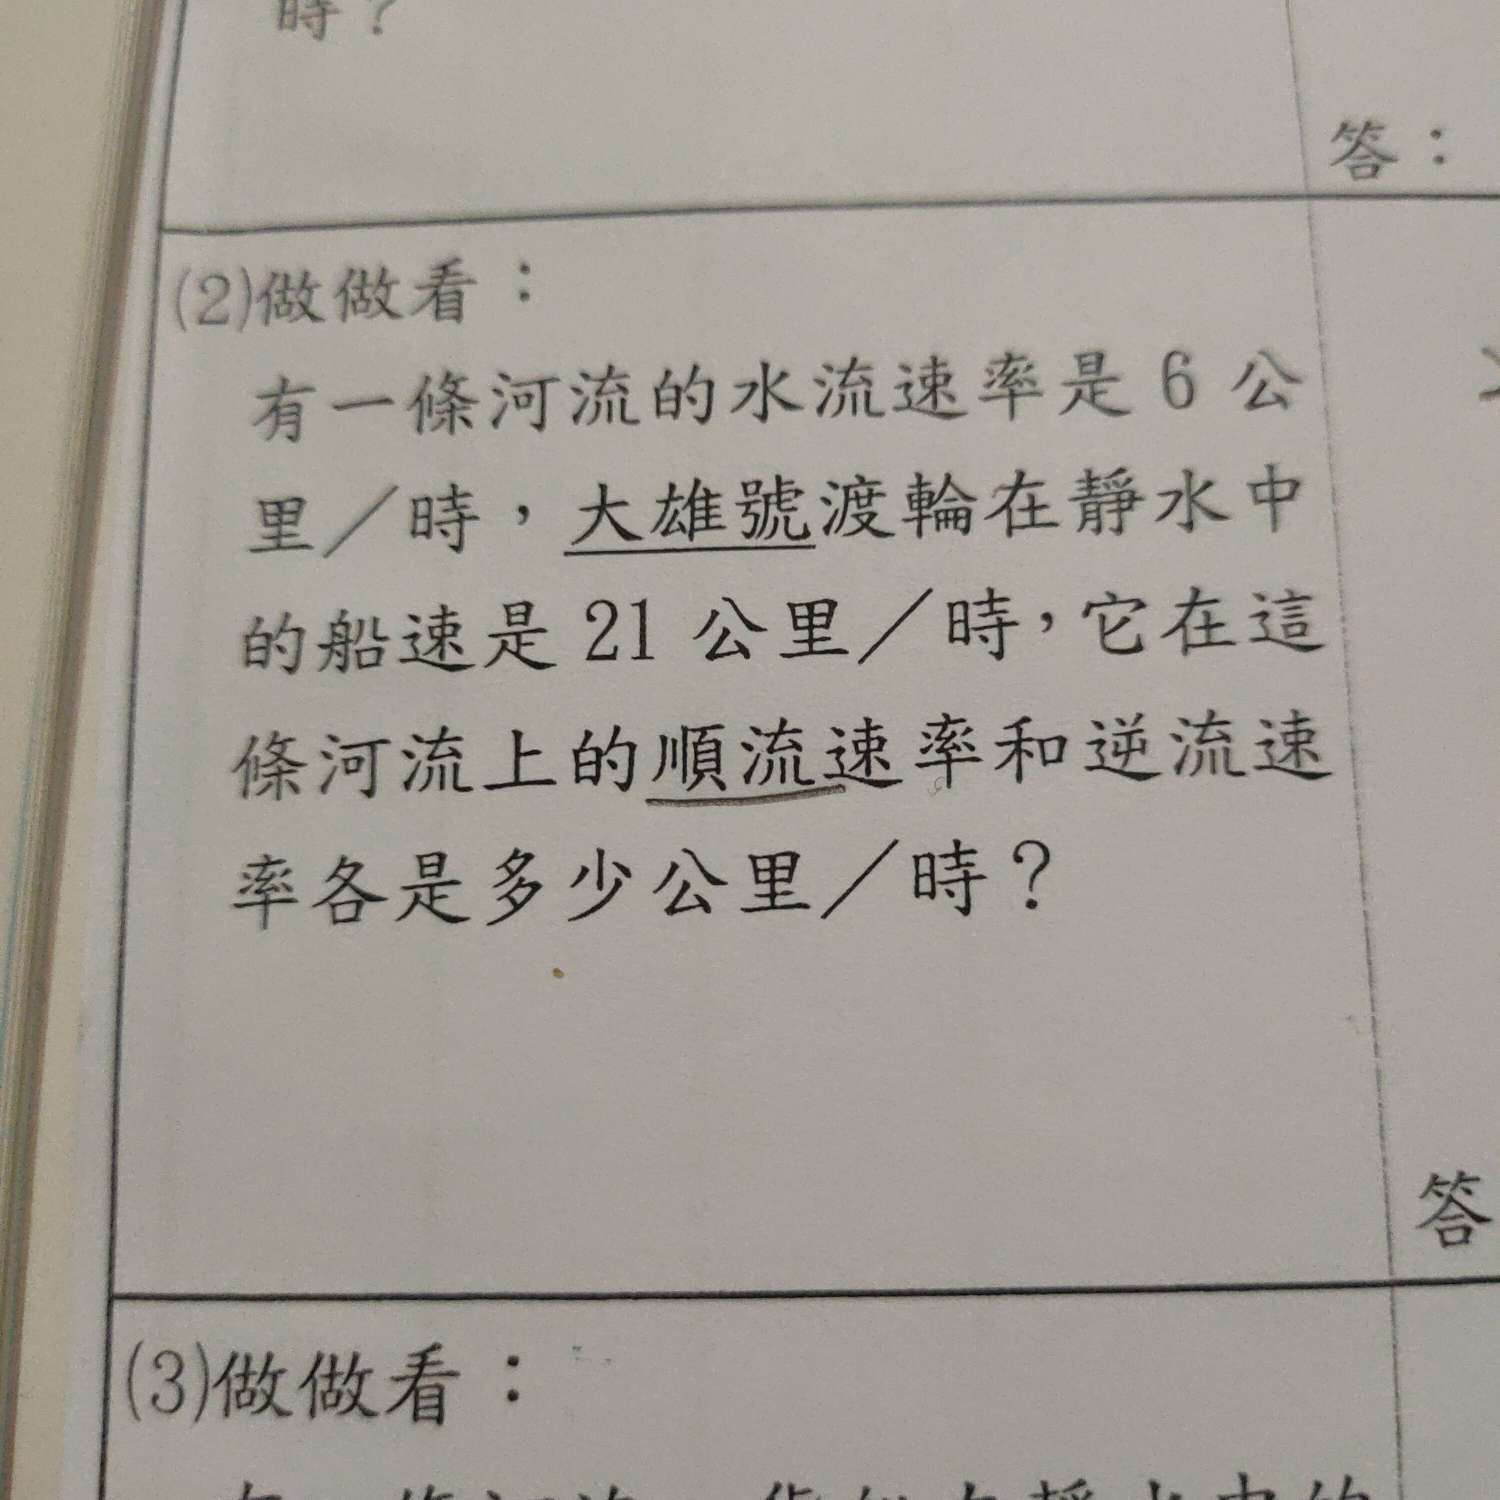 時?
答：
(2)做做看：
有一條河流的水流速率是 6 公
里／時，大雄號渡輪在靜水中
的船速是 21 公里／時，它在這
條河流上的順流速率和逆流速
率各是多少公里／時?
答
(3)做做看：